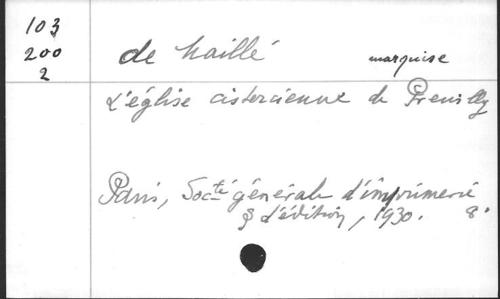 103
200
2
de Maillé marquise
L'église cistercienne de Preuilly
Paris, Socté générale d'imprimerie
& d'édition, 1930. 8°